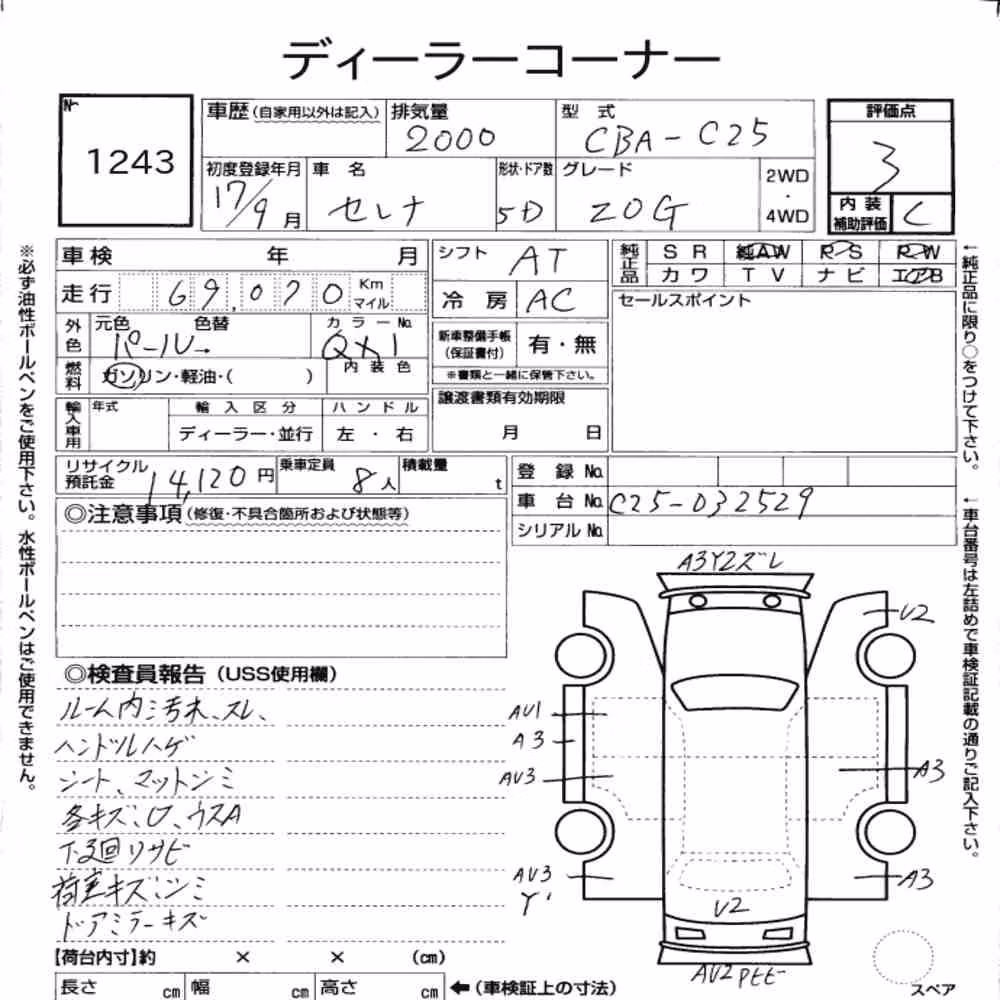 ディーラーコーナー
№
1243
車歴(自家用以外は記入)
排気量
2000
型 式
CBA-C25
評価点
3
初度登録年月
17/9月
車 名
セレナ
形状・ドア数
5D
グレード
20G
2WD
・
4WD
内装
補助評価
C
車検 年 月
シフト
AT
純正品
S R 純AW P・S P・W
カワ T V ナビ エアB
走行 69,070 Km
マイル
冷 房
AC
セールスポイント
外色
元色 色替
パール
カラーNo.
QX1
新車整備手帳
(保証書付)
有・無
※書類と一緒に保管下さい。
燃料
ガソリン・軽油・( )
内 装 色
輸入車用
年式
輸 入 区 分
ハ ン ド ル
ディーラー・並行
左 ・ 右
譲渡書類有効期限
月 日
リサイクル
預託金 14,120円
乗車定員
8人
積載量
t
登 録 No.
車 台 No.
C25-032529
シリアル No.
◎注意事項(修復・不具合箇所および状態等)
◎検査員報告(USS使用欄)
ルーム内ミ汚木、スレ、
ハンドルハゲ
シート、マットシミ
各キズ、ウスA
下廻リサビ
荷室キズ、シミ
ドアミラーキズ
A3Y2ズレ
U2
AU1
A3
AU3
A3
AU3
Y'
A3
U2
AU2
スペア
【荷台内寸】約 × × (cm)
長さ cm 幅 cm 高さ cm ←(車検証上の寸法)
※必ず油性ボールペンをご使用下さい。水性ボールペンはご使用できません。
←純正品に限り○をつけて下さい。
←車台番号は左詰めで車検証記載の通りご記入下さい。